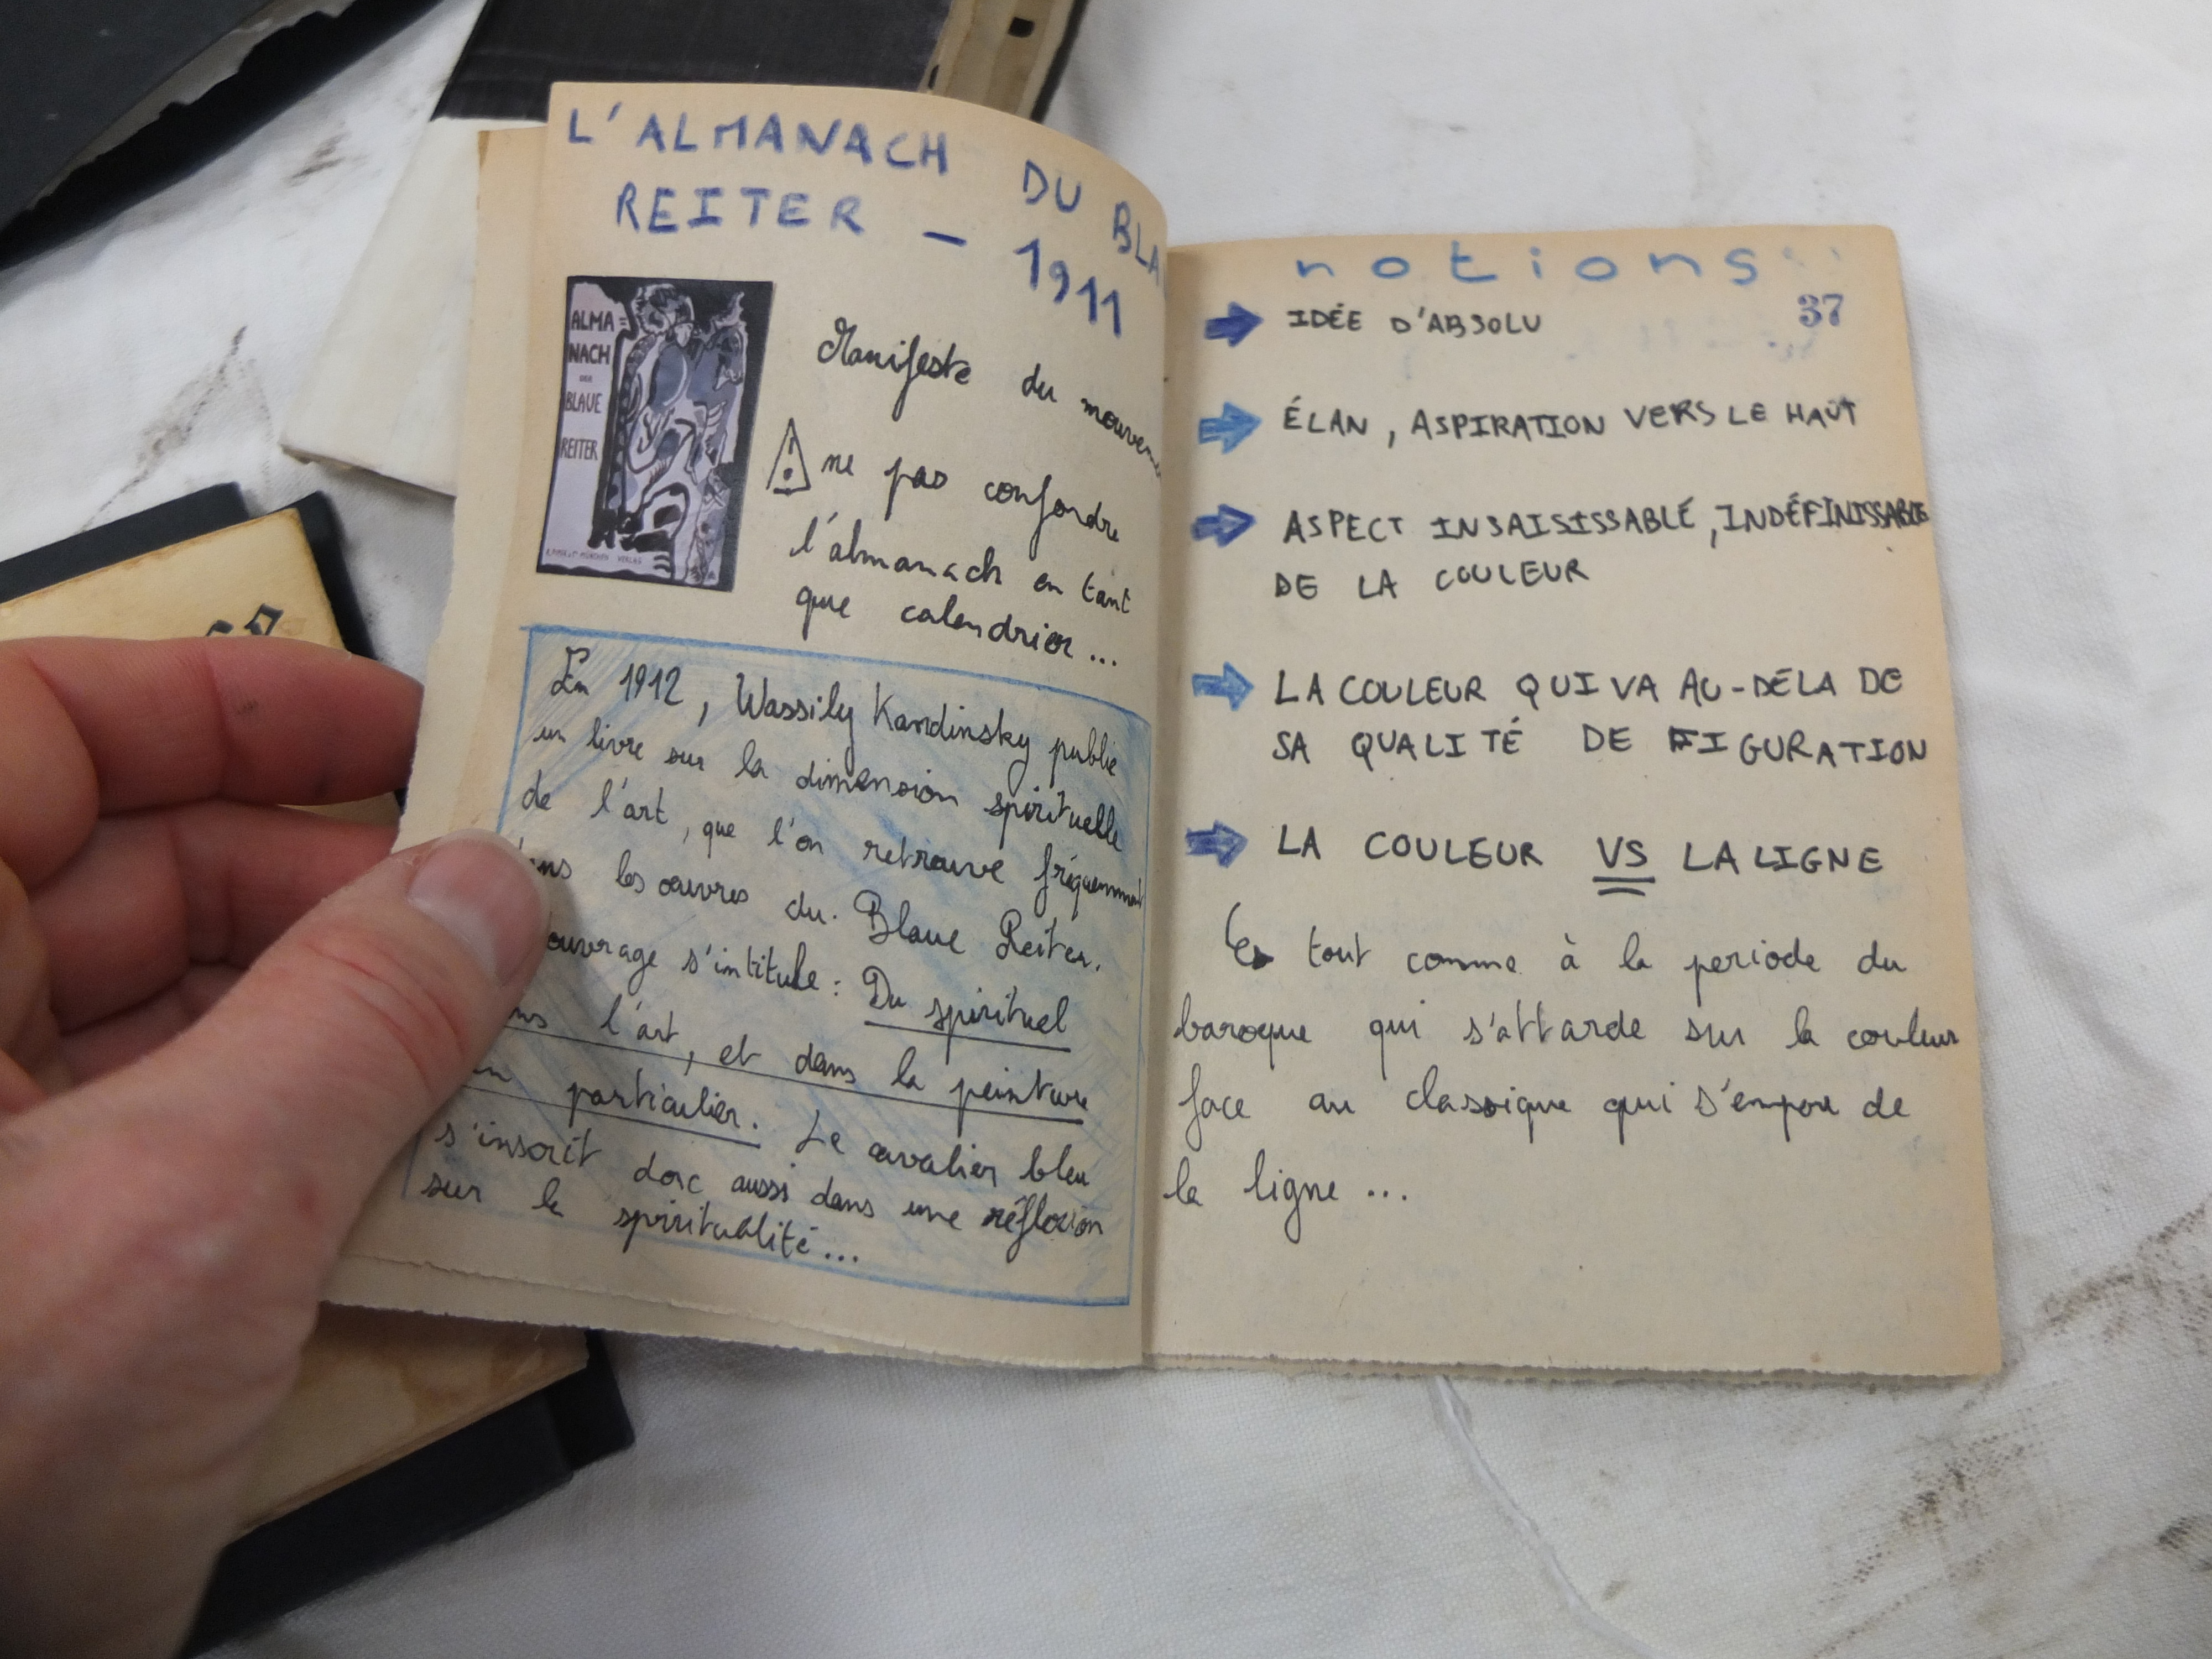 L'ALMANACH DU BLA
REITER – 1911
ALMA=
NACH
DER
BLAUE
REITER
Manifeste du mouvem
ne pas confondre
l'almanach en tant
que calendrier ...
En 1912, Wassily Kandinsky publie
un livre sur la dimension spirituelle
de l'art, que l'on retrouve fréquemment
ans les œuvres du Blaue Reiter.
ouvrage s'intitule : Du spirituel
ns l'art, et dans la peinture
en particulier. Le cavalier bleu
s'inscrit donc aussi dans une réflexion
sur la spiritualité ...
notions
37
IDÉE D'ABSOLU
ÉLAN, ASPIRATION VERS LE HAUT
ASPECT INSAISISSABLE, INDÉFINISSABLE
DE LA COULEUR
LA COULEUR QUI VA AU-DELA DE
SA QUALITÉ DE FIGURATION
LA COULEUR VS LA LIGNE
tout comme à la periode du
baroque qui s'attarde sur la couleur
face au classique qui s'empare de
la ligne ...